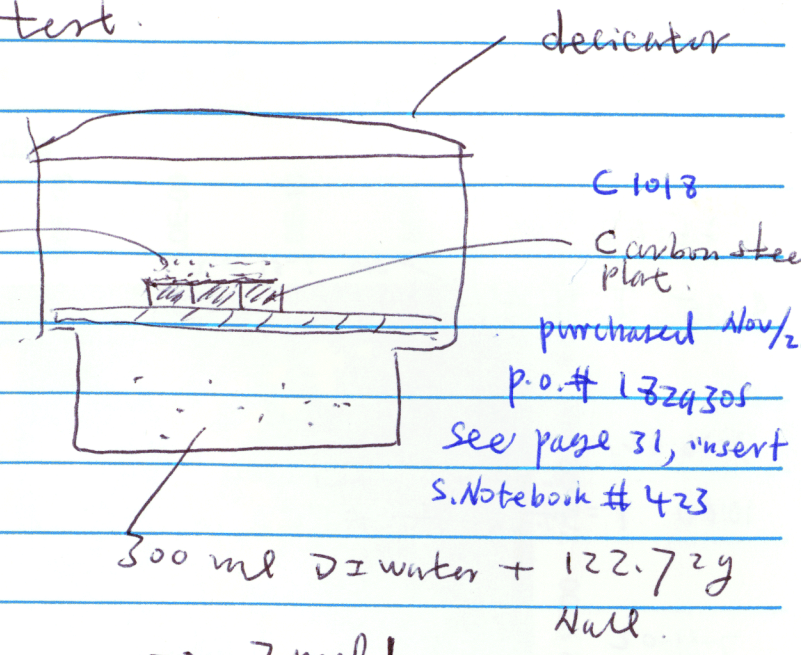 test.
decicator
C 1018
Carbon stee
plat.
purchased Nov/2
p.o.# 182930S
See page 31, insert
S.Notebook # 423
300 ml DI water + 122.72g
Nacl.